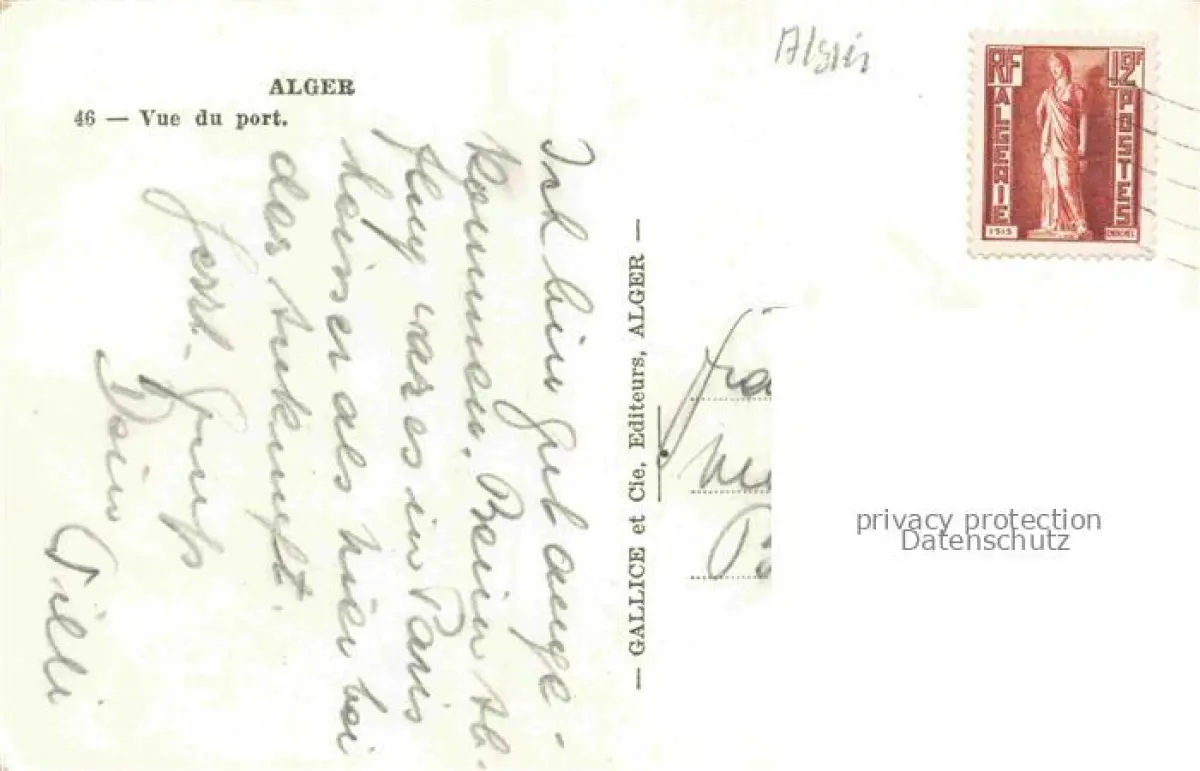 ALGER
46 — Vue du port.
Ich bin gut ange-
kommen. Beim Ab-
flug war es in Paris
heisser als hier bei
der Ankunft.
herzl. Gruss
Dein
Tilli
— GALLICE et Cie, Editeurs, ALGER —
RF
12F
ALGERIE
POSTES
ISIS
privacy protection
Datenschutz